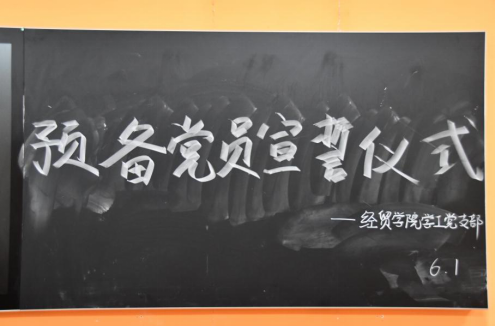 预备党员宣誓仪式
—经贸学院学工党支部
6.1